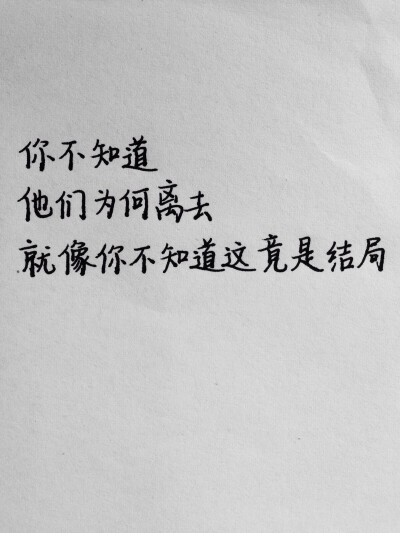 你不知道
他们为何离去
就像你不知道这竟是结局